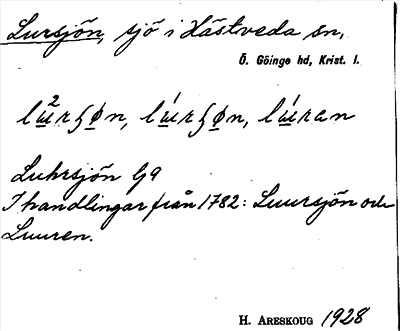 Lursjön, sjö i Hästveda sn,
Ö. Göinge hd, Krist. l.
Luhrsjön G9
I handlingar från 1782: Luursjön och
Luuren.
H. Areskoug 1928